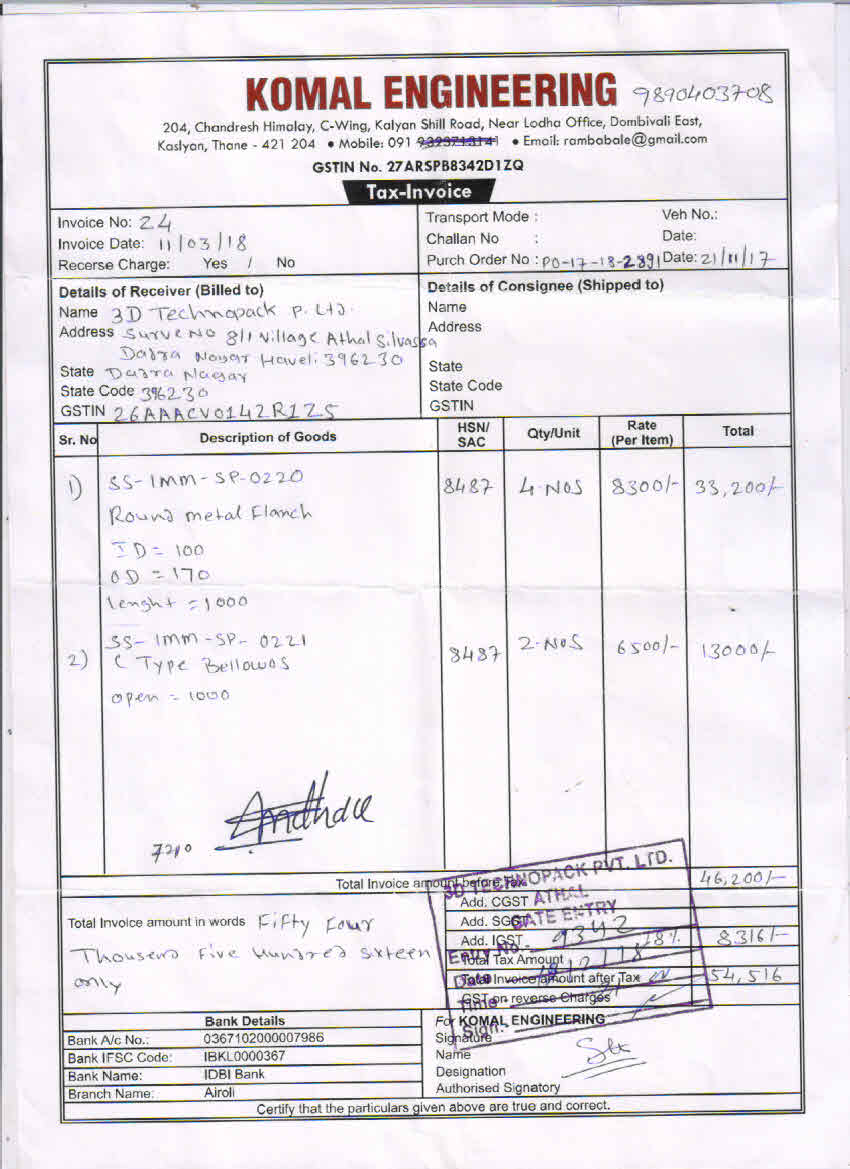 KOMAL ENGINEERING 9890403708
204, Chandresh Himalay, C-Wing, Kalyan Shill Road, Near Lodha Office, Dombivali East,
Kaslyan, Thane - 421 204 • Mobile: 091 • Email: rambabale@gmail.com
GSTIN No. 27ARSPB8342D1ZQ
Tax-Invoice
Invoice No: 24
Invoice Date: 11/03/18
Recerse Charge: Yes / No
Transport Mode : Veh No.:
Challan No : Date:
Purch Order No : PO-17-18-2891 Date: 21/11/17
Details of Receiver (Billed to)
Name 3D Technopack P. Ltd.
Address Surve No 8/1 Village Athal Silvassa
Dadra Nagar Haveli 396230
State Dadra Nagar
State Code 396230
GSTIN 26AAACV0142R1Z5
Details of Consignee (Shipped to)
Name
Address
State
State Code
GSTIN
Sr. No Description of Goods HSN/SAC Qty/Unit Rate (Per Item) Total
1) SS-IMM-SP-0220 8487 4-NOS 8300/- 33,200/-
Round metal Flanch
ID = 100
OD = 170
lenght = 1000
2) SS-IMM-SP-0221 8487 2-NOS 6500/- 13000/-
C Type Bellowos
open = 1000
7210
Total Invoice amount before Tax 46,200/-
Total Invoice amount in words Fifty Four
Thousend Five Hundred sixteen
only
Add. CGST
Add. SGST
Add. IGST 18% 8316/-
Total Tax Amount
Total Invoice amount after Tax 54,516
GST on reverse Charges
3D TECHNOPACK PVT. LTD.
ATHAL
GATE ENTRY
Entry No. 9342
Date
Time
Sign.
Bank Details
Bank A/c No.: 0367102000007986
Bank IFSC Code: IBKL0000367
Bank Name: IDBI Bank
Branch Name: Airoli
For KOMAL ENGINEERING
Signature
Name
Designation
Authorised Signatory
Certify that the particulars given above are true and correct.